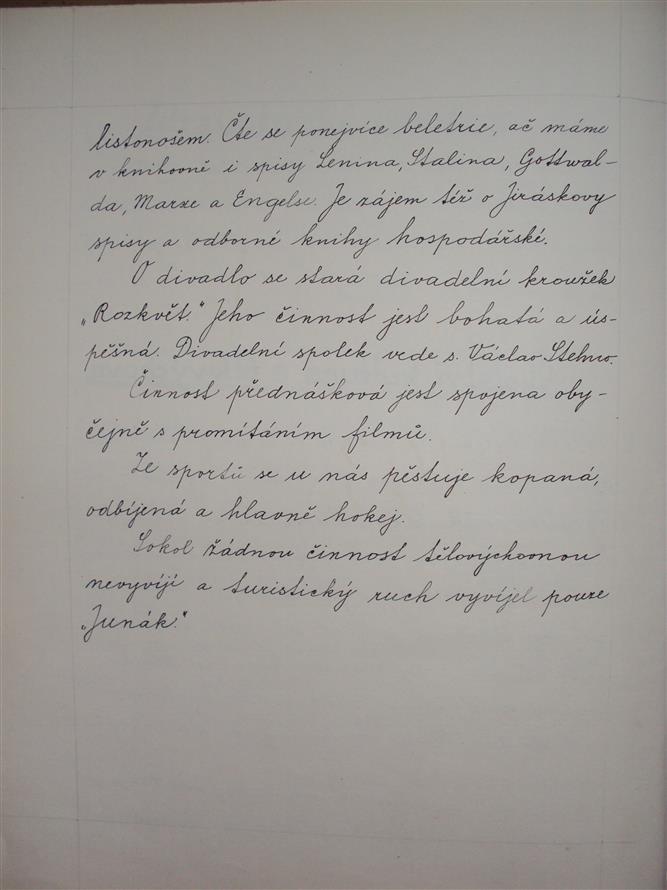 listonošem. Čte se ponejvíce beletrie, ač máme
v knihovně i spisy Lenina, Stalina, Gottwal-
da, Marxe a Engelse. Je zájem též o Jiráskovy
spisy a odborné knihy hospodářské.
O divadlo se stará divadelní kroužek
„Rozkvět.“ Jeho činnost jest bohatá a ús-
pěšná. Divadelní spolek vede s. Václav Stehno.
Činnost přednášková jest spojena oby-
čejně s promítáním filmů.
Ze sportů se u nás pěstuje kopaná,
odbíjená a hlavně hokej.
Sokol žádnou činnost tělovýchovnou
nevyvíjí a turistický ruch vyvíjel pouze
„Junák.“